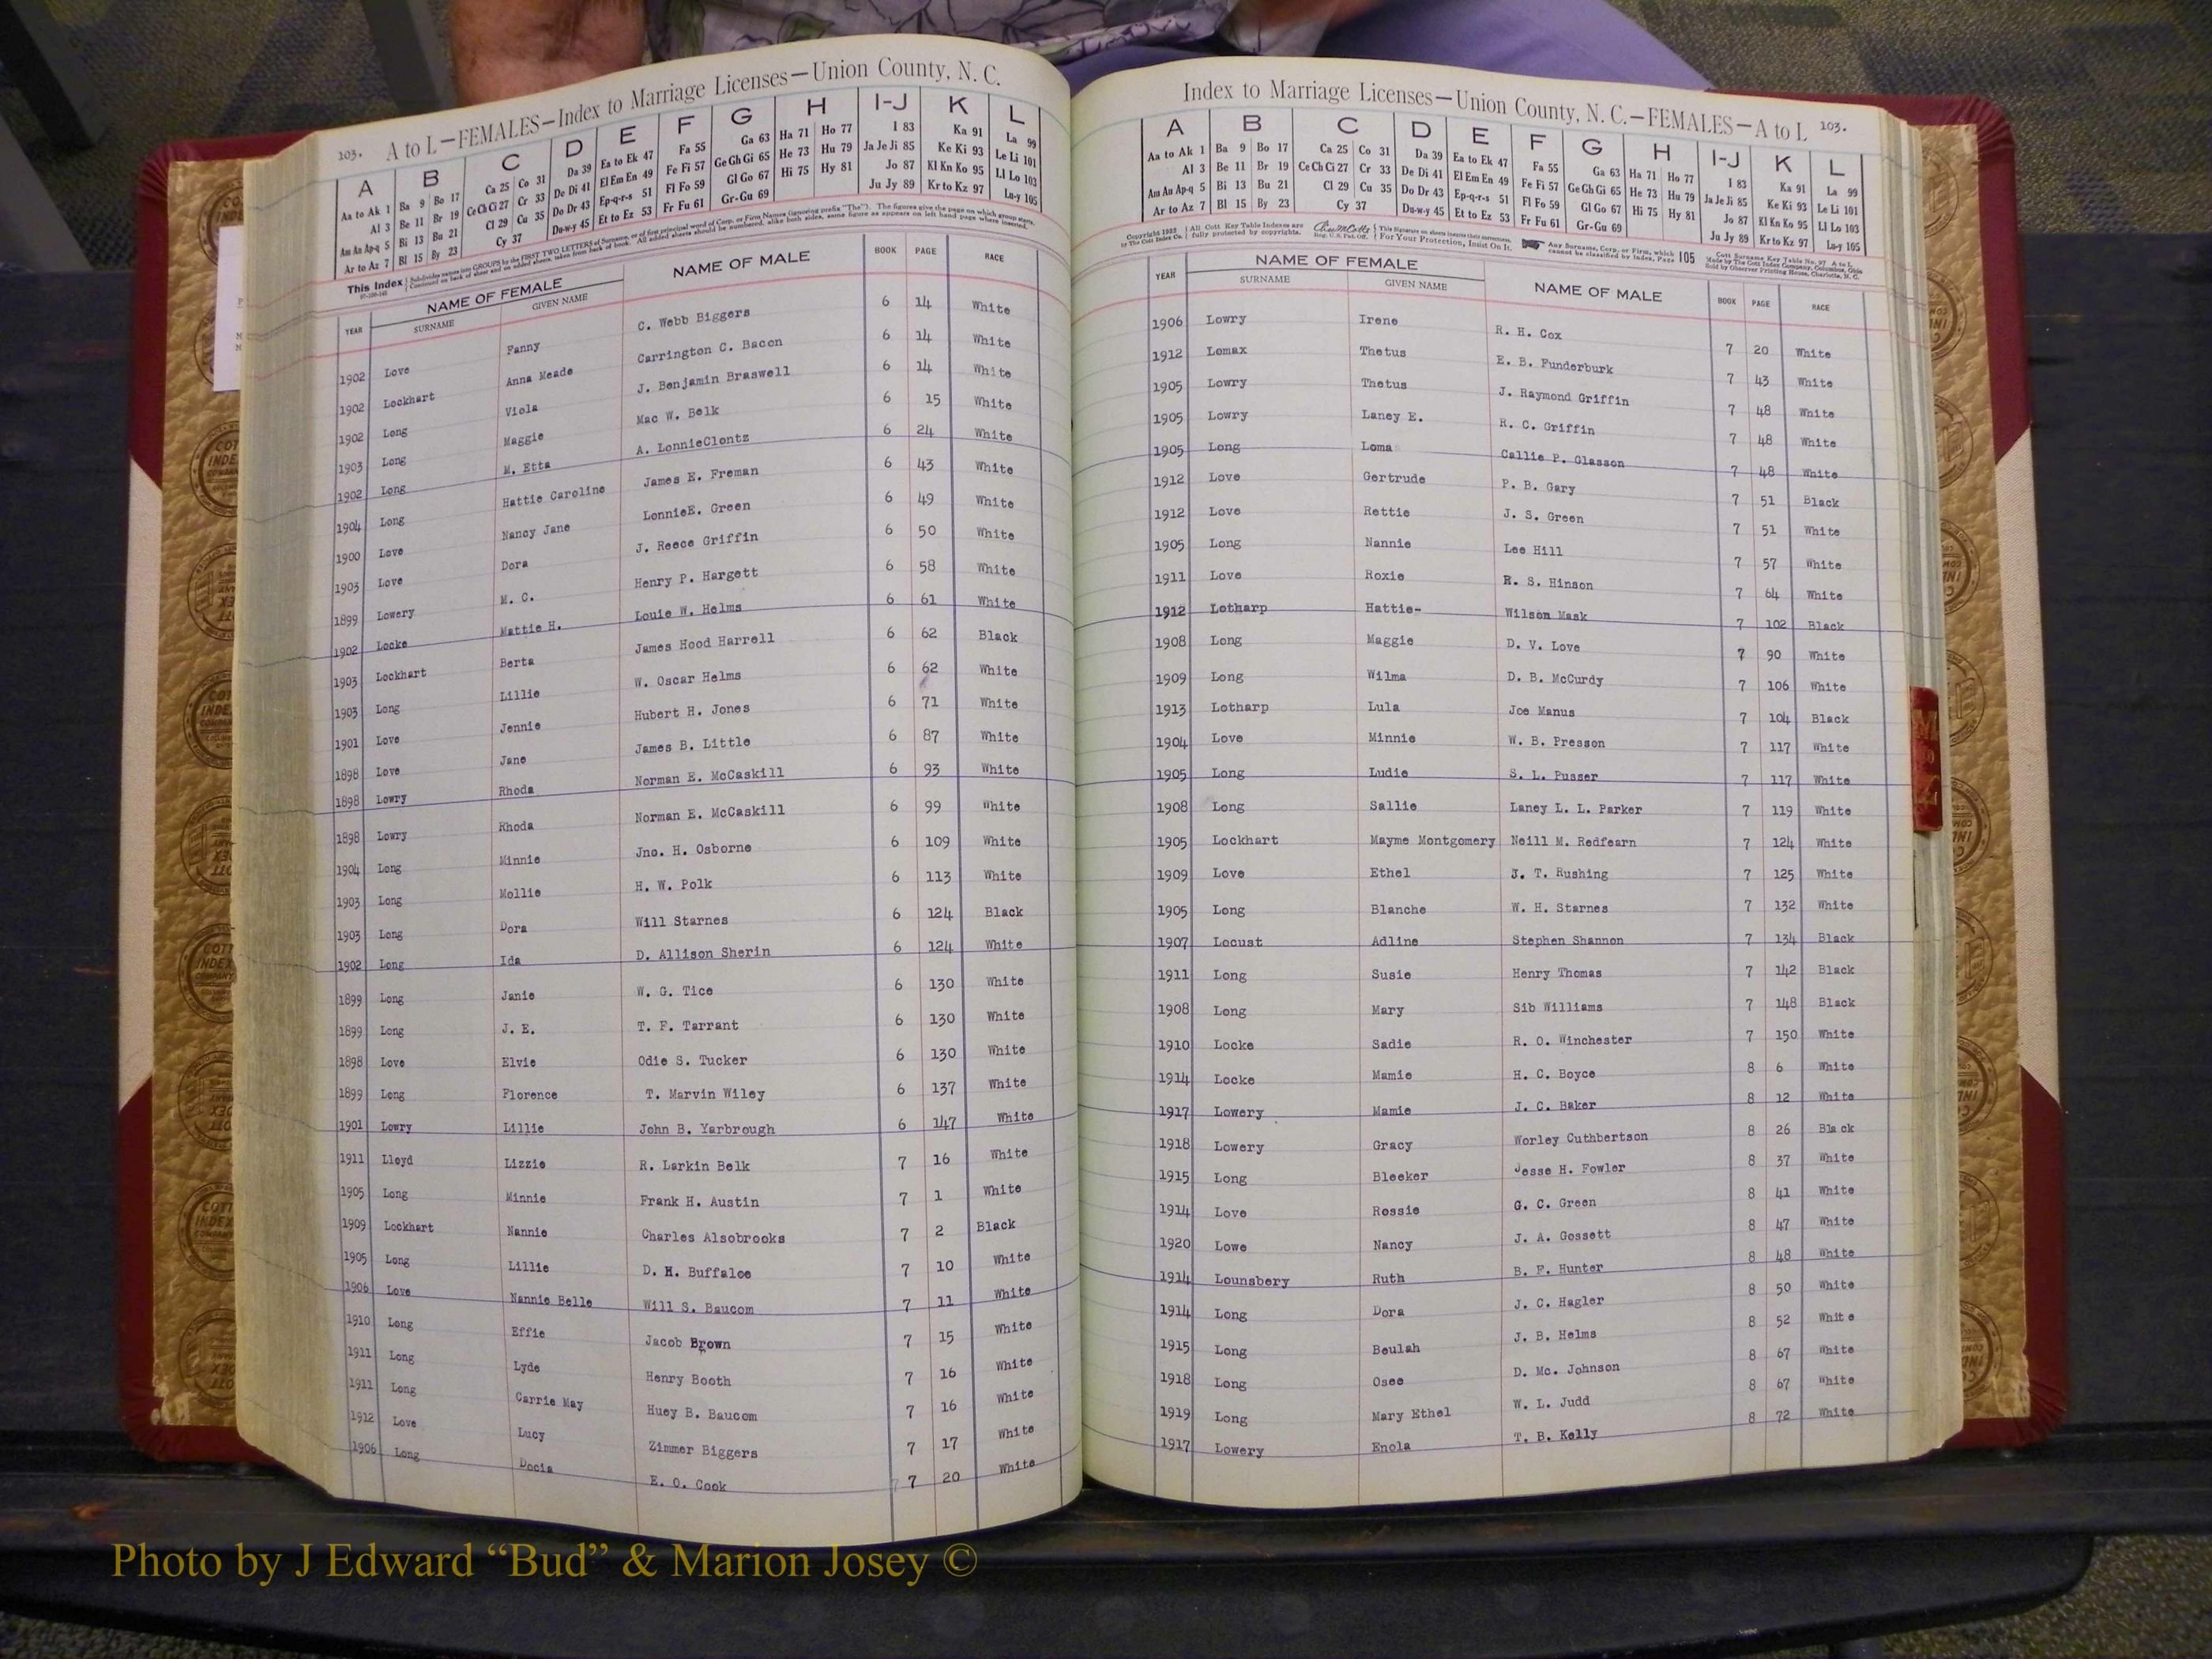 103. A to L—FEMALES—Index to Marriage Licenses—Union County, N. C.
A B C D E F G H I-J K L
Aa to Ak 1 Ba 9 Bo 17 Ca 25 Co 31 Da 39 Ea to Ek 47 Fa 55 Ga 63 Ha 71 Ho 77 I 83 Ka 91 La 99
Al 3 Be 11 Br 19 Ce Ch Ci 27 Cr 33 De Di 41 El Em En 49 Fe Fi 57 Ge Gh Gi 65 He 73 Hu 79 Ja Je Ji 85 Ke Ki 93 Le Li 101
Am An Ap-q 5 Bi 13 Bu 21 Cl 29 Cu 35 Do Dr 43 Ep-q-r-s 51 Fl Fo 59 Gl Go 67 Hi 75 Hy 81 Jo 87 Kl Kn Ko 95 Ll Lo 103
Ar to Az 7 Bl 15 By 23 Cy 37 Du-w-y 45 Et to Ez 53 Fr Fu 61 Gr-Gu 69 Ju Jy 89 Kr to Kz 97 Lu-y 105
This Index Subdivides names into GROUPS by the FIRST TWO LETTERS of Surname, or of first principal word of Corp. or Firm Names (ignoring prefix "The"). The figures give the page on which group starts.
Continued on back of sheet and on added sheets, taken from back of book. All added sheets should be numbered, alike both sides, same figure as appears on left hand page where inserted.
YEAR NAME OF FEMALE NAME OF MALE BOOK PAGE RACE
SURNAME GIVEN NAME
1902 Love Fanny C. Webb Biggers 6 14 White
1902 Lockhart Anna Meade Carrington C. Bacon 6 14 White
1902 Long Viola J. Benjamin Braswell 6 14 White
1903 Long Maggie Mac W. Belk 6 15 White
1902 Long M. Etta A. LonnieClontz 6 24 White
1904 Long Hattie Caroline James E. Freman 6 43 White
1900 Love Nancy Jane LonnieE. Green 6 49 White
1903 Love Dora J. Reece Griffin 6 50 White
1899 Lowery M. C. Henry P. Hargett 6 58 White
1902 Locke Mattie H. Louie W. Helms 6 61 White
1903 Lockhart Berta James Hood Harrell 6 62 Black
1903 Long Lillie W. Oscar Helms 6 62 White
1901 Love Jennie Hubert H. Jones 6 71 White
1898 Love Jane James B. Little 6 87 White
1898 Lowry Rhoda Norman E. McCaskill 6 93 White
1898 Lowry Rhoda Norman E. McCaskill 6 99 White
1904 Long Minnie Jno. H. Osborne 6 109 White
1903 Long Mollie H. W. Polk 6 113 White
1903 Long Dora Will Starnes 6 124 Black
1902 Long Ida D. Allison Sherin 6 124 White
1899 Long Janie W. G. Tice 6 130 White
1899 Long J. E. T. F. Tarrant 6 130 White
1898 Love Elvie Odie S. Tucker 6 130 White
1899 Long Florence T. Marvin Wiley 6 137 White
1901 Lowry Lillie John B. Yarbrough 6 147 White
1911 Lloyd Lizzie R. Larkin Belk 7 16 White
1905 Long Minnie Frank H. Austin 7 1 White
1909 Lockhart Nannie Charles Alsobrooks 7 2 Black
1905 Long Lillie D. H. Buffaloe 7 10 White
1906 Love Nannie Belle Will S. Baucom 7 11 White
1910 Long Effie Jacob Brown 7 15 White
1911 Long Lyde Henry Booth 7 16 White
1911 Long Carrie May Huey B. Baucom 7 16 White
1912 Love Lucy Zimmer Biggers 7 17 White
1906 Long Docia E. O. Cook 7 20 White
Index to Marriage Licenses—Union County, N. C.—FEMALES—A to L 103.
A B C D E F G H I-J K L
Aa to Ak 1 Ba 9 Bo 17 Ca 25 Co 31 Da 39 Ea to Ek 47 Fa 55 Ga 63 Ha 71 Ho 77 I 83 Ka 91 La 99
Al 3 Be 11 Br 19 Ce Ch Ci 27 Cr 33 De Di 41 El Em En 49 Fe Fi 57 Ge Gh Gi 65 He 73 Hu 79 Ja Je Ji 85 Ke Ki 93 Le Li 101
Am An Ap-q 5 Bi 13 Bu 21 Cl 29 Cu 35 Do Dr 43 Ep-q-r-s 51 Fl Fo 59 Gl Go 67 Hi 75 Hy 81 Jo 87 Kl Kn Ko 95 Ll Lo 103
Ar to Az 7 Bl 15 By 23 Cy 37 Du-w-y 45 Et to Ez 53 Fr Fu 61 Gr-Gu 69 Ju Jy 89 Kr to Kz 97 Lu-y 105
Copyright 1922 All Cott Key Table Indexes are This Signature on sheets insures their correctness. Any Surname, Corp. or Firm, which Cott Surname Key Table No. 97 A to L
by The Cott Index Co. fully protected by copyrights. Reg. U.S. Pat. Off. For Your Protection, Insist On It. cannot be classified by Index, Page 105 Made by The Cott Index Company, Columbus, Ohio
Sold by Observer Printing House, Charlotte, N. C.
YEAR NAME OF FEMALE NAME OF MALE BOOK PAGE RACE
SURNAME GIVEN NAME
1906 Lowry Irene R. H. Cox 7 20 White
1912 Lomax Thetus E. B. Funderburk 7 43 White
1905 Lowry Thetus J. Raymond Griffin 7 48 White
1905 Lowry Laney E. R. C. Griffin 7 48 White
1905 Long Loma Callie P. Glasson 7 48 White
1912 Love Gertrude P. B. Gary 7 51 Black
1912 Love Rettie J. S. Green 7 51 White
1905 Long Nannie Lee Hill 7 57 White
1911 Love Roxie R. S. Hinson 7 64 White
1912 Lotharp Hattie- Wilson Mask 7 102 Black
1908 Long Maggie D. V. Love 7 90 White
1909 Long Wilma D. B. McCurdy 7 106 White
1913 Lotharp Lula Joe Manus 7 104 Black
1904 Love Minnie W. B. Presson 7 117 White
1905 Long Ludie S. L. Pusser 7 117 White
1908 Long Sallie Laney L. L. Parker 7 119 White
1905 Lockhart Mayme Montgomery Neill M. Redfearn 7 124 White
1909 Love Ethel J. T. Rushing 7 125 White
1905 Long Blanche W. H. Starnes 7 132 White
1907 Locust Adline Stephen Shannon 7 134 Black
1911 Long Susie Henry Thomas 7 142 Black
1908 Long Mary Sib Williams 7 148 Black
1910 Locke Sadie R. O. Winchester 7 150 White
1914 Locke Mamie H. C. Boyce 8 6 White
1917 Lowery Mamie J. C. Baker 8 12 White
1918 Lowery Gracy Worley Cuthbertson 8 26 Black
1915 Long Bleeker Jesse H. Fowler 8 37 White
1914 Love Rossie G. C. Green 8 41 White
1920 Lowe Nancy J. A. Gossett 8 47 White
1914 Lounsbery Ruth B. F. Hunter 8 48 White
1914 Long Dora J. C. Hagler 8 50 White
1915 Long Beulah J. B. Helms 8 52 White
1918 Long Osee D. Mc. Johnson 8 67 White
1919 Long Mary Ethel W. L. Judd 8 67 White
1917 Lowery Enola T. B. Kelly 8 72 White
Photo by J Edward “Bud” & Marion Josey ©